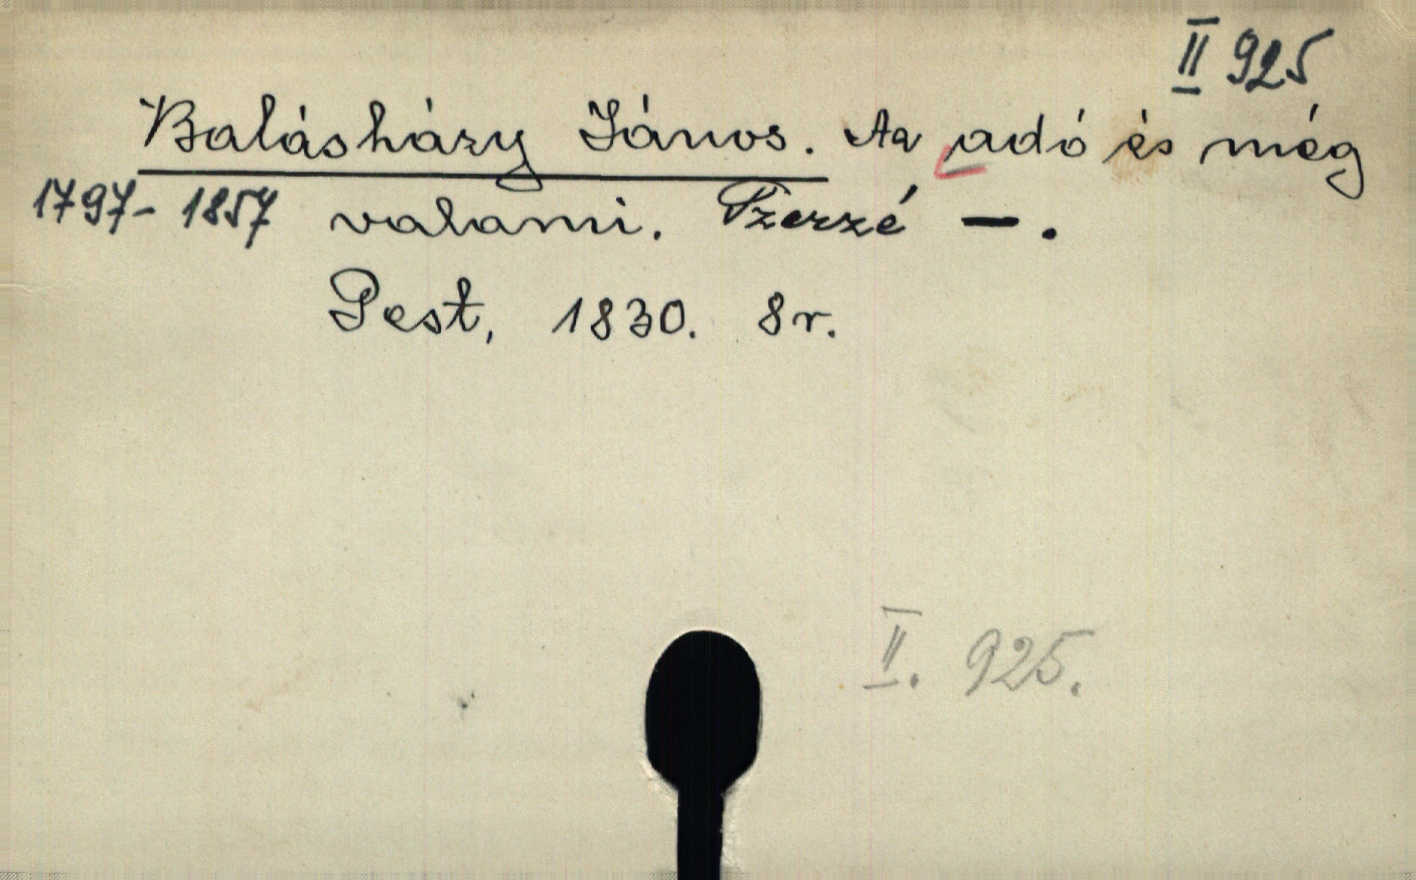 II 925
Balásházy János. Az adó és még
1797-1857 valami. Szerzé — .
Pest, 1830. 8r.
II. 925.